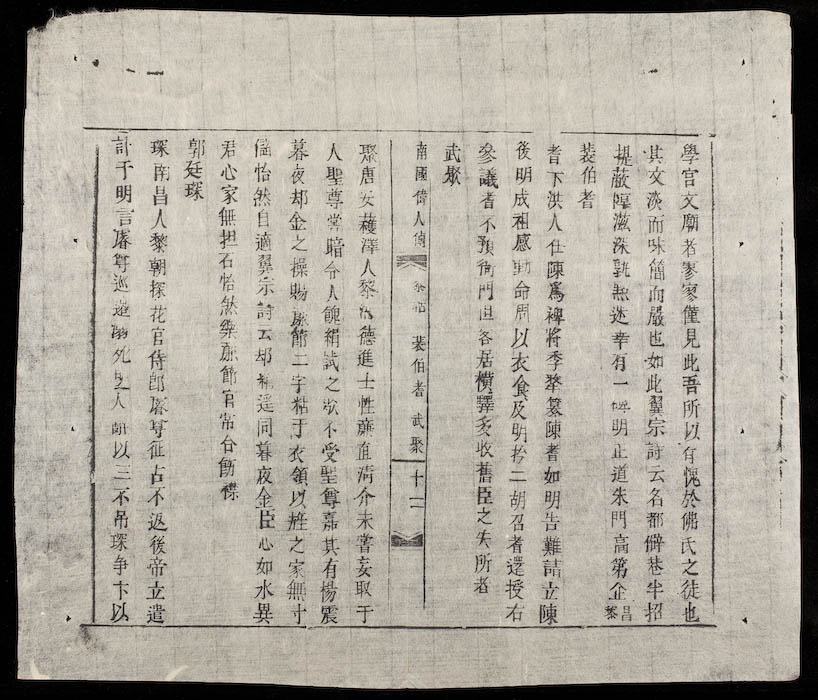 學官文廟者寥寥僅見此吾所以有愧於佛氏之徒也
其文淡而味簡而嚴也如此翼宗詩云名都僻巷半招
提蔽障滋深孰無迷幸有一碑明正道朱門高第企昌黎
裴伯耆
耆下洪人仕陳爲裨將季犛篡陳耆如明告難請立陳
後明成祖感動命周以衣食及明擒二胡召耆還授右
參議耆不預衙門但各居橫驛多收舊臣之失所者
武聚
南國偉人傳 裴伯耆 武聚 十二
聚唐安穫澤人黎洪德進士性廉直清介未嘗妄取于
人聖尊嘗暗令人餽絹試之不受聖尊嘉其有楊震
暮夜却金之操賜廉節二字粘于衣領以旌之家無寸
儲怡然自適翼宗詩云却絹遥同暮夜金臣心如水異
君心家無担石怡然樂廉節官常合勵襟
郭廷琛
琛南昌人黎朝探花官侍郎睿尊征占不返後帝立遣
訃于明言睿尊巡邊溺死人以三不吊琛争卞以